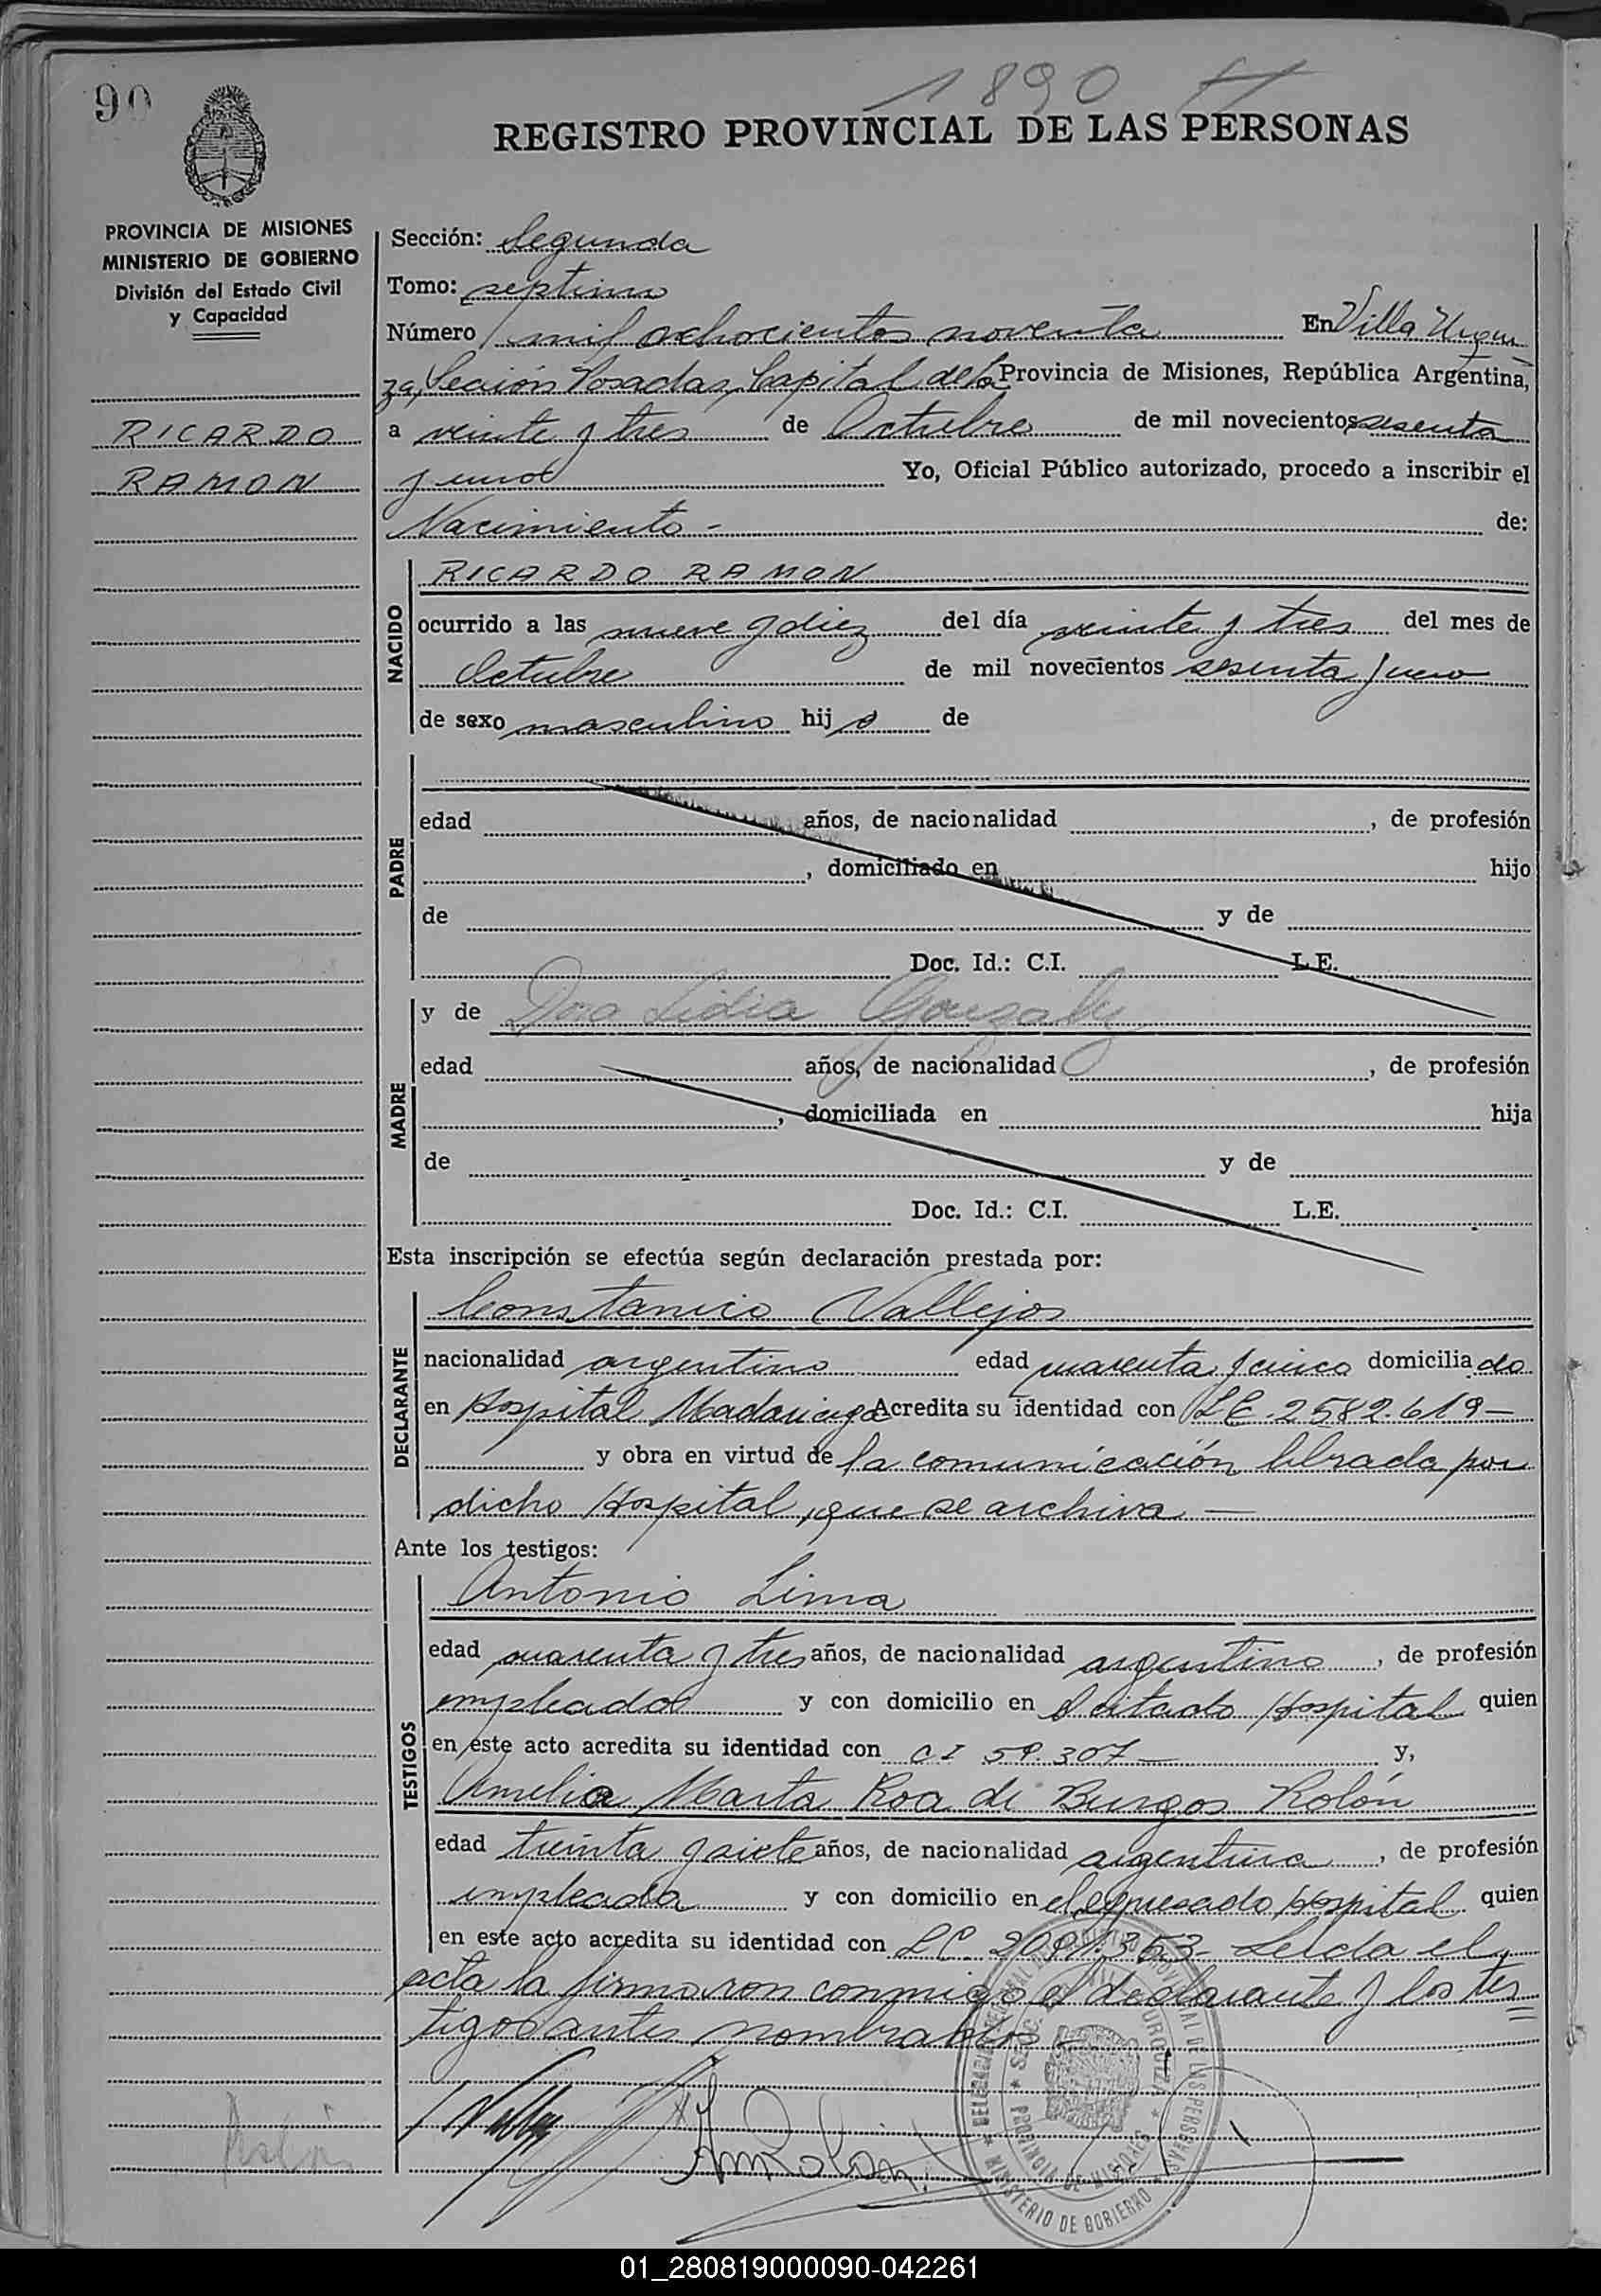 90
1890
REGISTRO PROVINCIAL DE LAS PERSONAS
PROVINCIA DE MISIONES
MINISTERIO DE GOBIERNO
División del Estado Civil
y Capacidad
RICARDO
RAMON
Sección: Segunda
Tomo: septimo
Número mil ochocientos noventa En Villa Urqui
za, Sección Posadas, Capital de la Provincia de Misiones, República Argentina,
a veinte y tres de Octubre de mil novecientos sesenta
y uno Yo, Oficial Público autorizado, procedo a inscribir el
Nacimiento - de:
NACIDO
RICARDO RAMON
ocurrido a las nueve y diez del día veinte y tres del mes de
Octubre de mil novecientos sesenta y uno
de sexo masculino hijo de
PADRE
edad años, de nacionalidad , de profesión
, domiciliado en hijo
de y de
Doc. Id.: C.I. L.E.
MADRE
y de Lidia Gonzalez
edad años, de nacionalidad , de profesión
, domiciliada en hija
de y de
Doc. Id.: C.I. L.E.
Esta inscripción se efectúa según declaración prestada por:
DECLARANTE
Constancio Vallejos
nacionalidad argentino edad cuarenta y cinco domiciliado
en Hospital Madariaga Acredita su identidad con LE. 2582.619 -
y obra en virtud de la comunicación librada por
dicho Hospital, que se archiva -
Ante los testigos:
TESTIGOS
Antonio Lima
edad cuarenta y tres años, de nacionalidad argentino, de profesión
empleado y con domicilio en el citado Hospital quien
en este acto acredita su identidad con CI 59.307 - y,
Amelia Marta Roa de Burgos Rolón
edad treinta y siete años, de nacionalidad argentina, de profesión
empleada y con domicilio en el expresado Hospital quien
en este acto acredita su identidad con Leída el
acta la firmaron conmigo el declarante y los tes
tigos antes nombrados
Rolón
DELEGACION REGISTRO PROVINCIAL DE LAS PERSONAS
MINISTERIO DE GOBIERNO
URQUIZA
PROVINCIA DE MISIONES
01_280819000090-042261